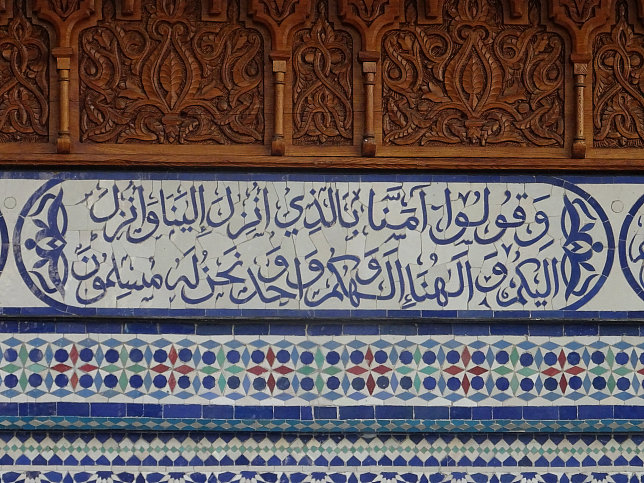 وَقُولُوا آمَنَّا بِالَّذِي أُنْزِلَ إِلَيْنَا وَأُنْزِلَ
إِلَيْكُمْ وَإِلَهُنَا وَإِلَهُكُمْ وَاحِدٌ وَنَحْنُ لَهُ مُسْلِمُونَ